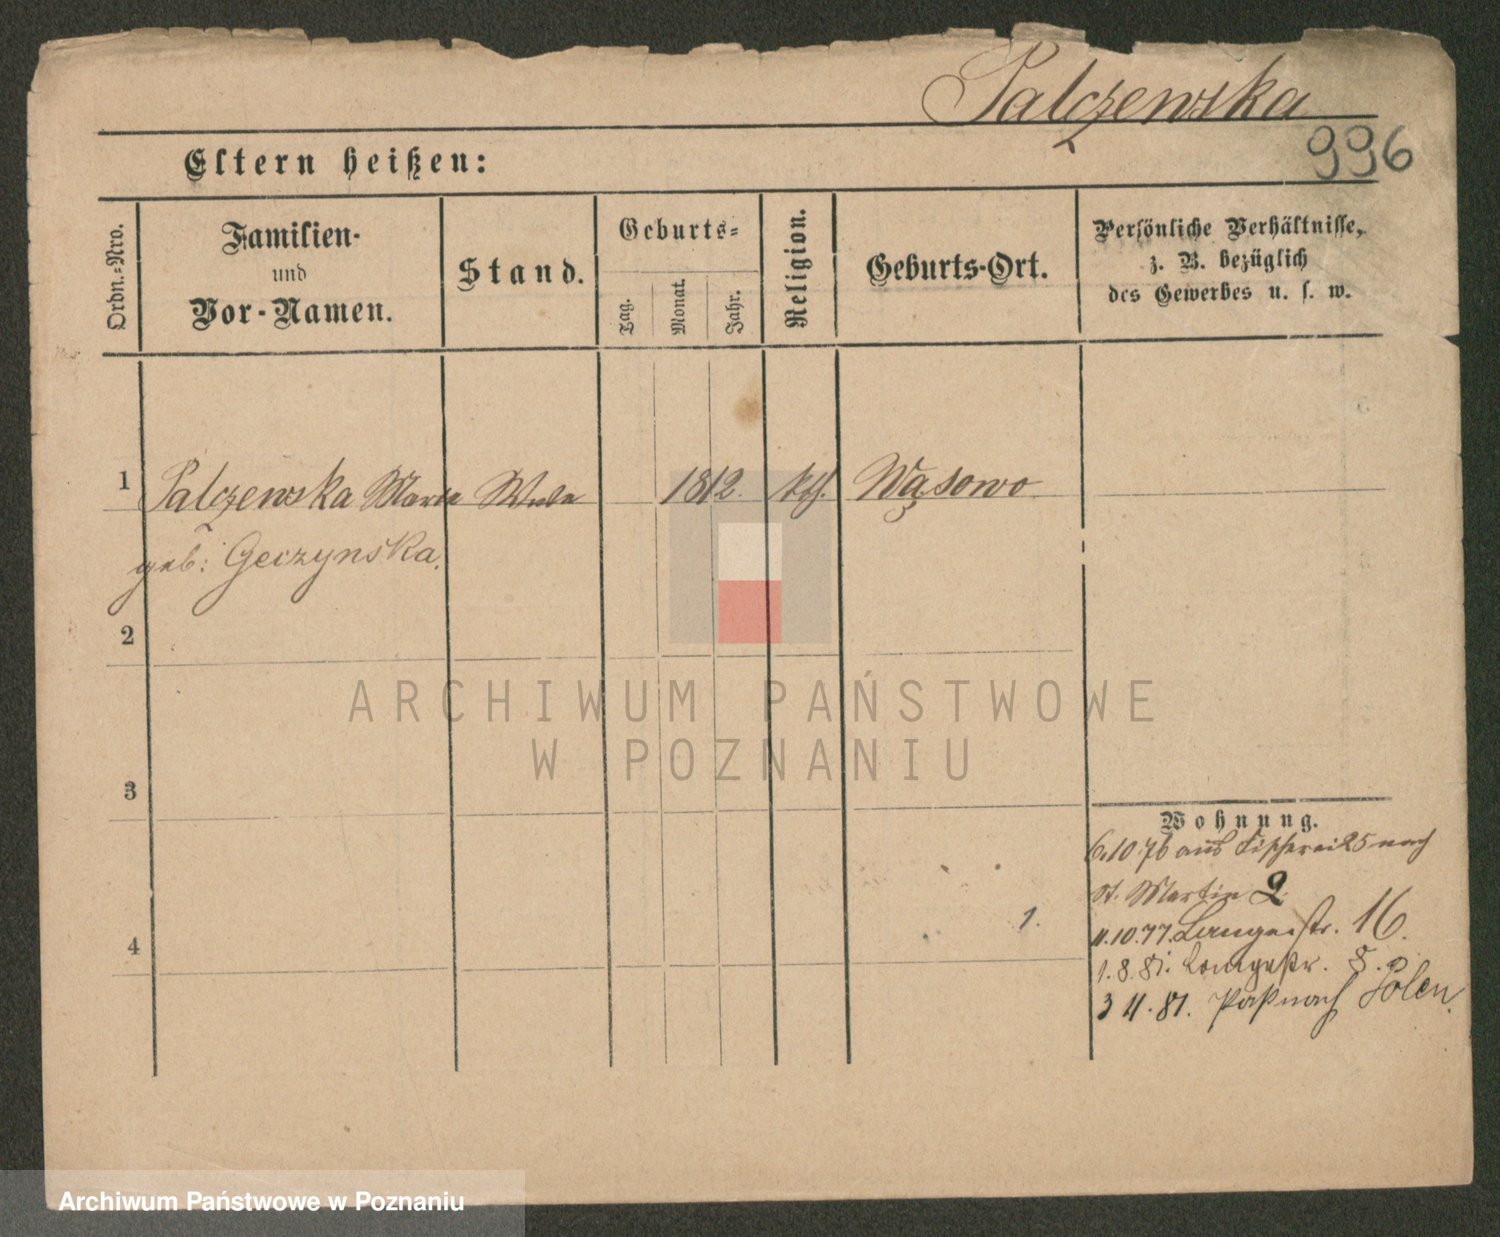 Palczewska
996
Eltern heißen:
Ordn.-Nro.
Familien-
und
Vor-Namen.
Stand.
Geburts-
Tag.
Monat.
Jahr.
Religion.
Geburts-Ort.
Persönliche Verhältnisse,
z. B. bezüglich
des Gewerbes u. s. w.
1 Palczewska Maria Wwe 1812. kth. Wąsowo
geb: Geczynska.
2
3
4
1.
Wohnung.
6.10 76 aus Fischerei 25 nach
St. Martin 2.
11.10.77. Langestr. 16.
1.8.81. Langestr. 8.
3 11.81. Paß nach Polen.
ARCHIWUM PAŃSTWOWE
W POZNANIU
Archiwum Państwowe w Poznaniu